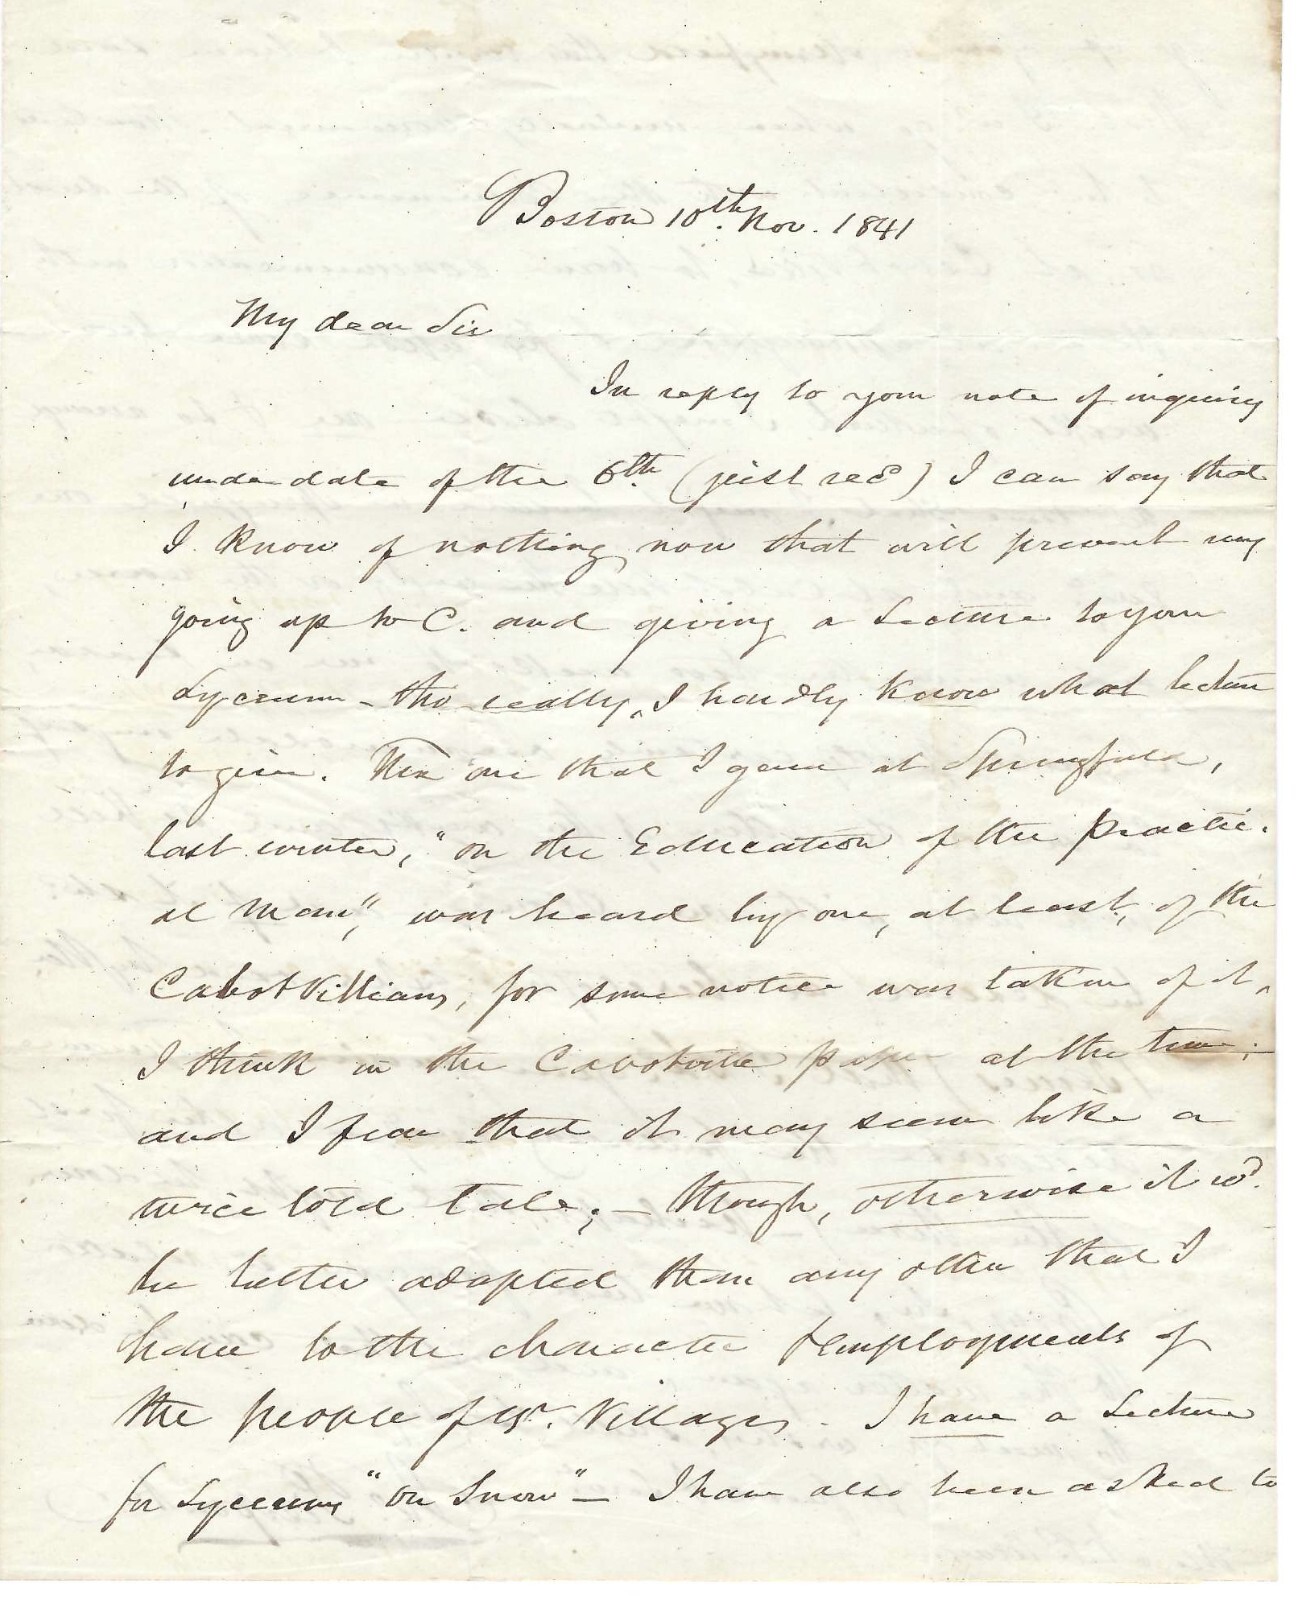 Boston 10th. Nov. 1841
My dear Sir
In reply to your note of inquiry
under date of the 6th. (just recd) I can say that
I know of nothing now that will prevent my
going up to C. and giving a Lecture to your
Lyceum – tho' really, I hardly know what lecture
to give. The one that I gave at Springfield,
last winter, "on the Education of the practic-
al Man", was heard by one, at least, of the
CabotVillians, for some notice was taken of it,
I think in the Cabotville paper at the time;
and I fear that it may seem like a
twice told tale; – though, otherwise it wd.
be better adapted than any other that I
have to the character & employments of
the people of yr. Village. I have a Lecture
for Lyceums "on Snow" – I have also been asked to